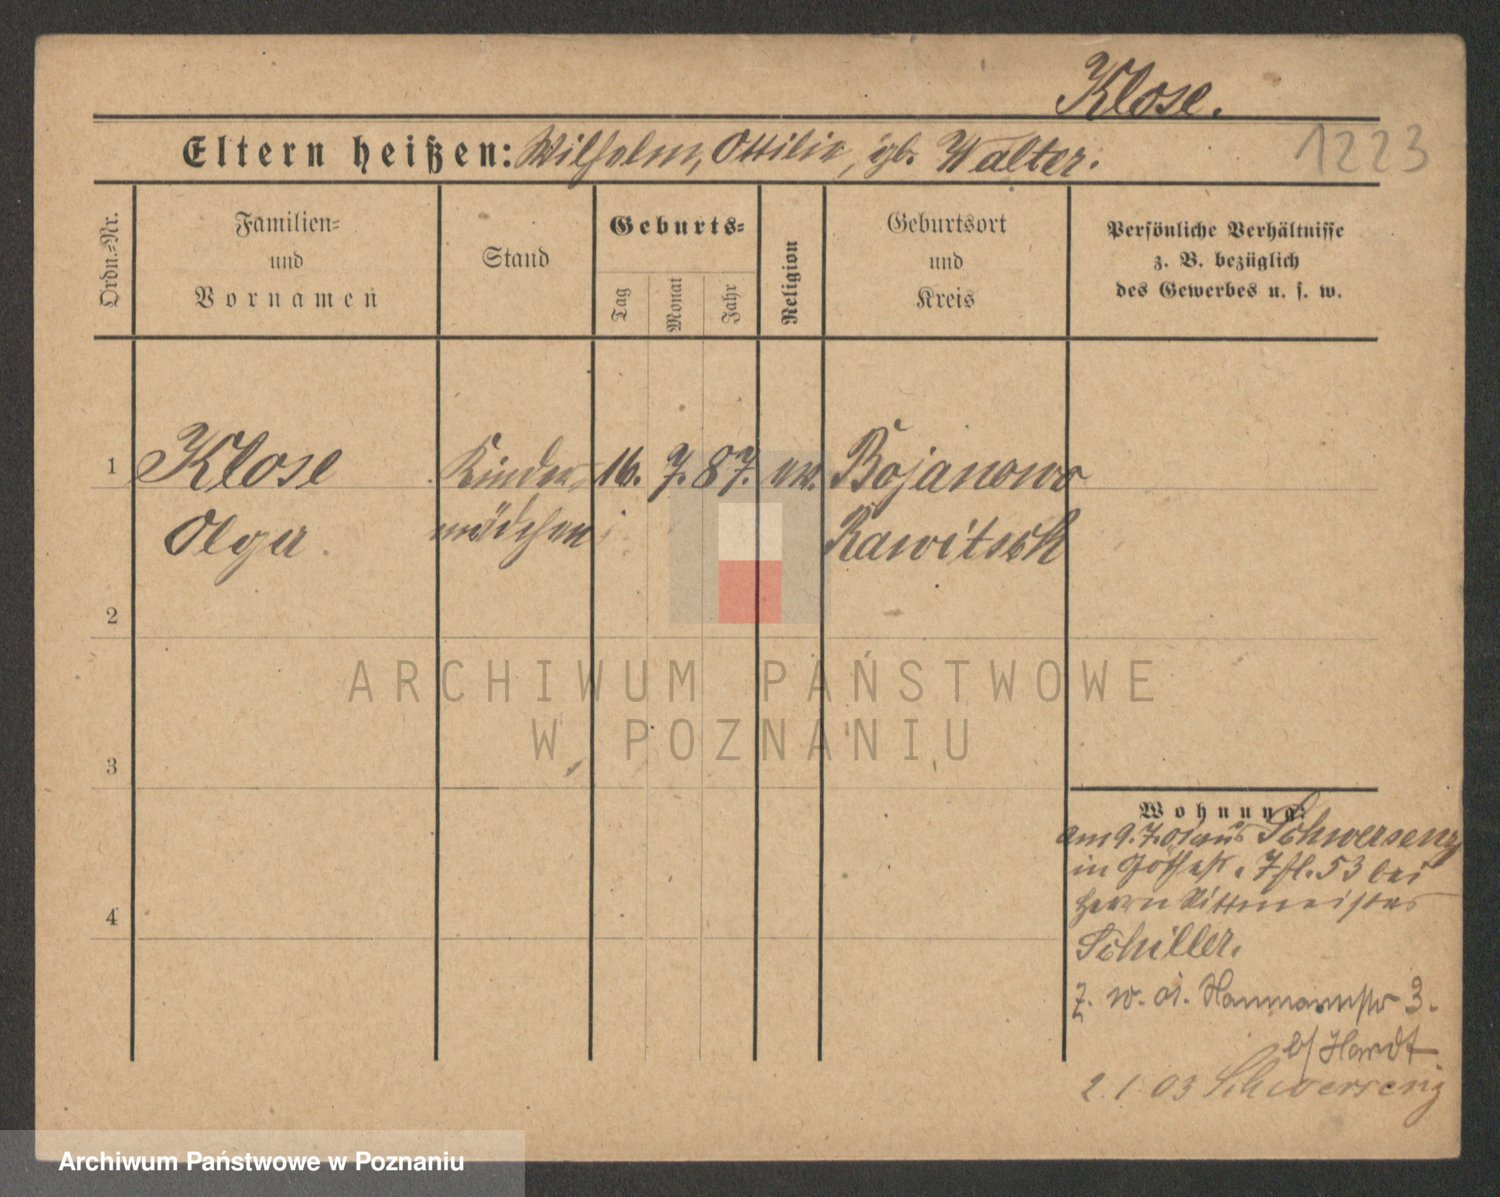 Klose.
1223
Eltern heißen: Wilhelm, Ottilie, gb. Walter.
Ordn.=Nr.
Familien=
und
Vornamen
Stand
Geburts=
Tag
Monat
Jahr
Religion
Geburtsort
und
Kreis
Persönliche Verhältnisse
z. B. bezüglich
des Gewerbes u. s. w.
1 Klose Kinder= 16. 7. 87. ev. Bojanowo
Olga mädchen Rawitsch
2
3
4
Wohnung:
am 9.7.01 aus Schwersenz
in 53 bei
Herrn Rittmeister
Schiller.
3.
b/ Hardt
2.1.03 Schwersenz
ARCHIWUM PAŃSTWOWE
W POZNANIU
Archiwum Państwowe w Poznaniu